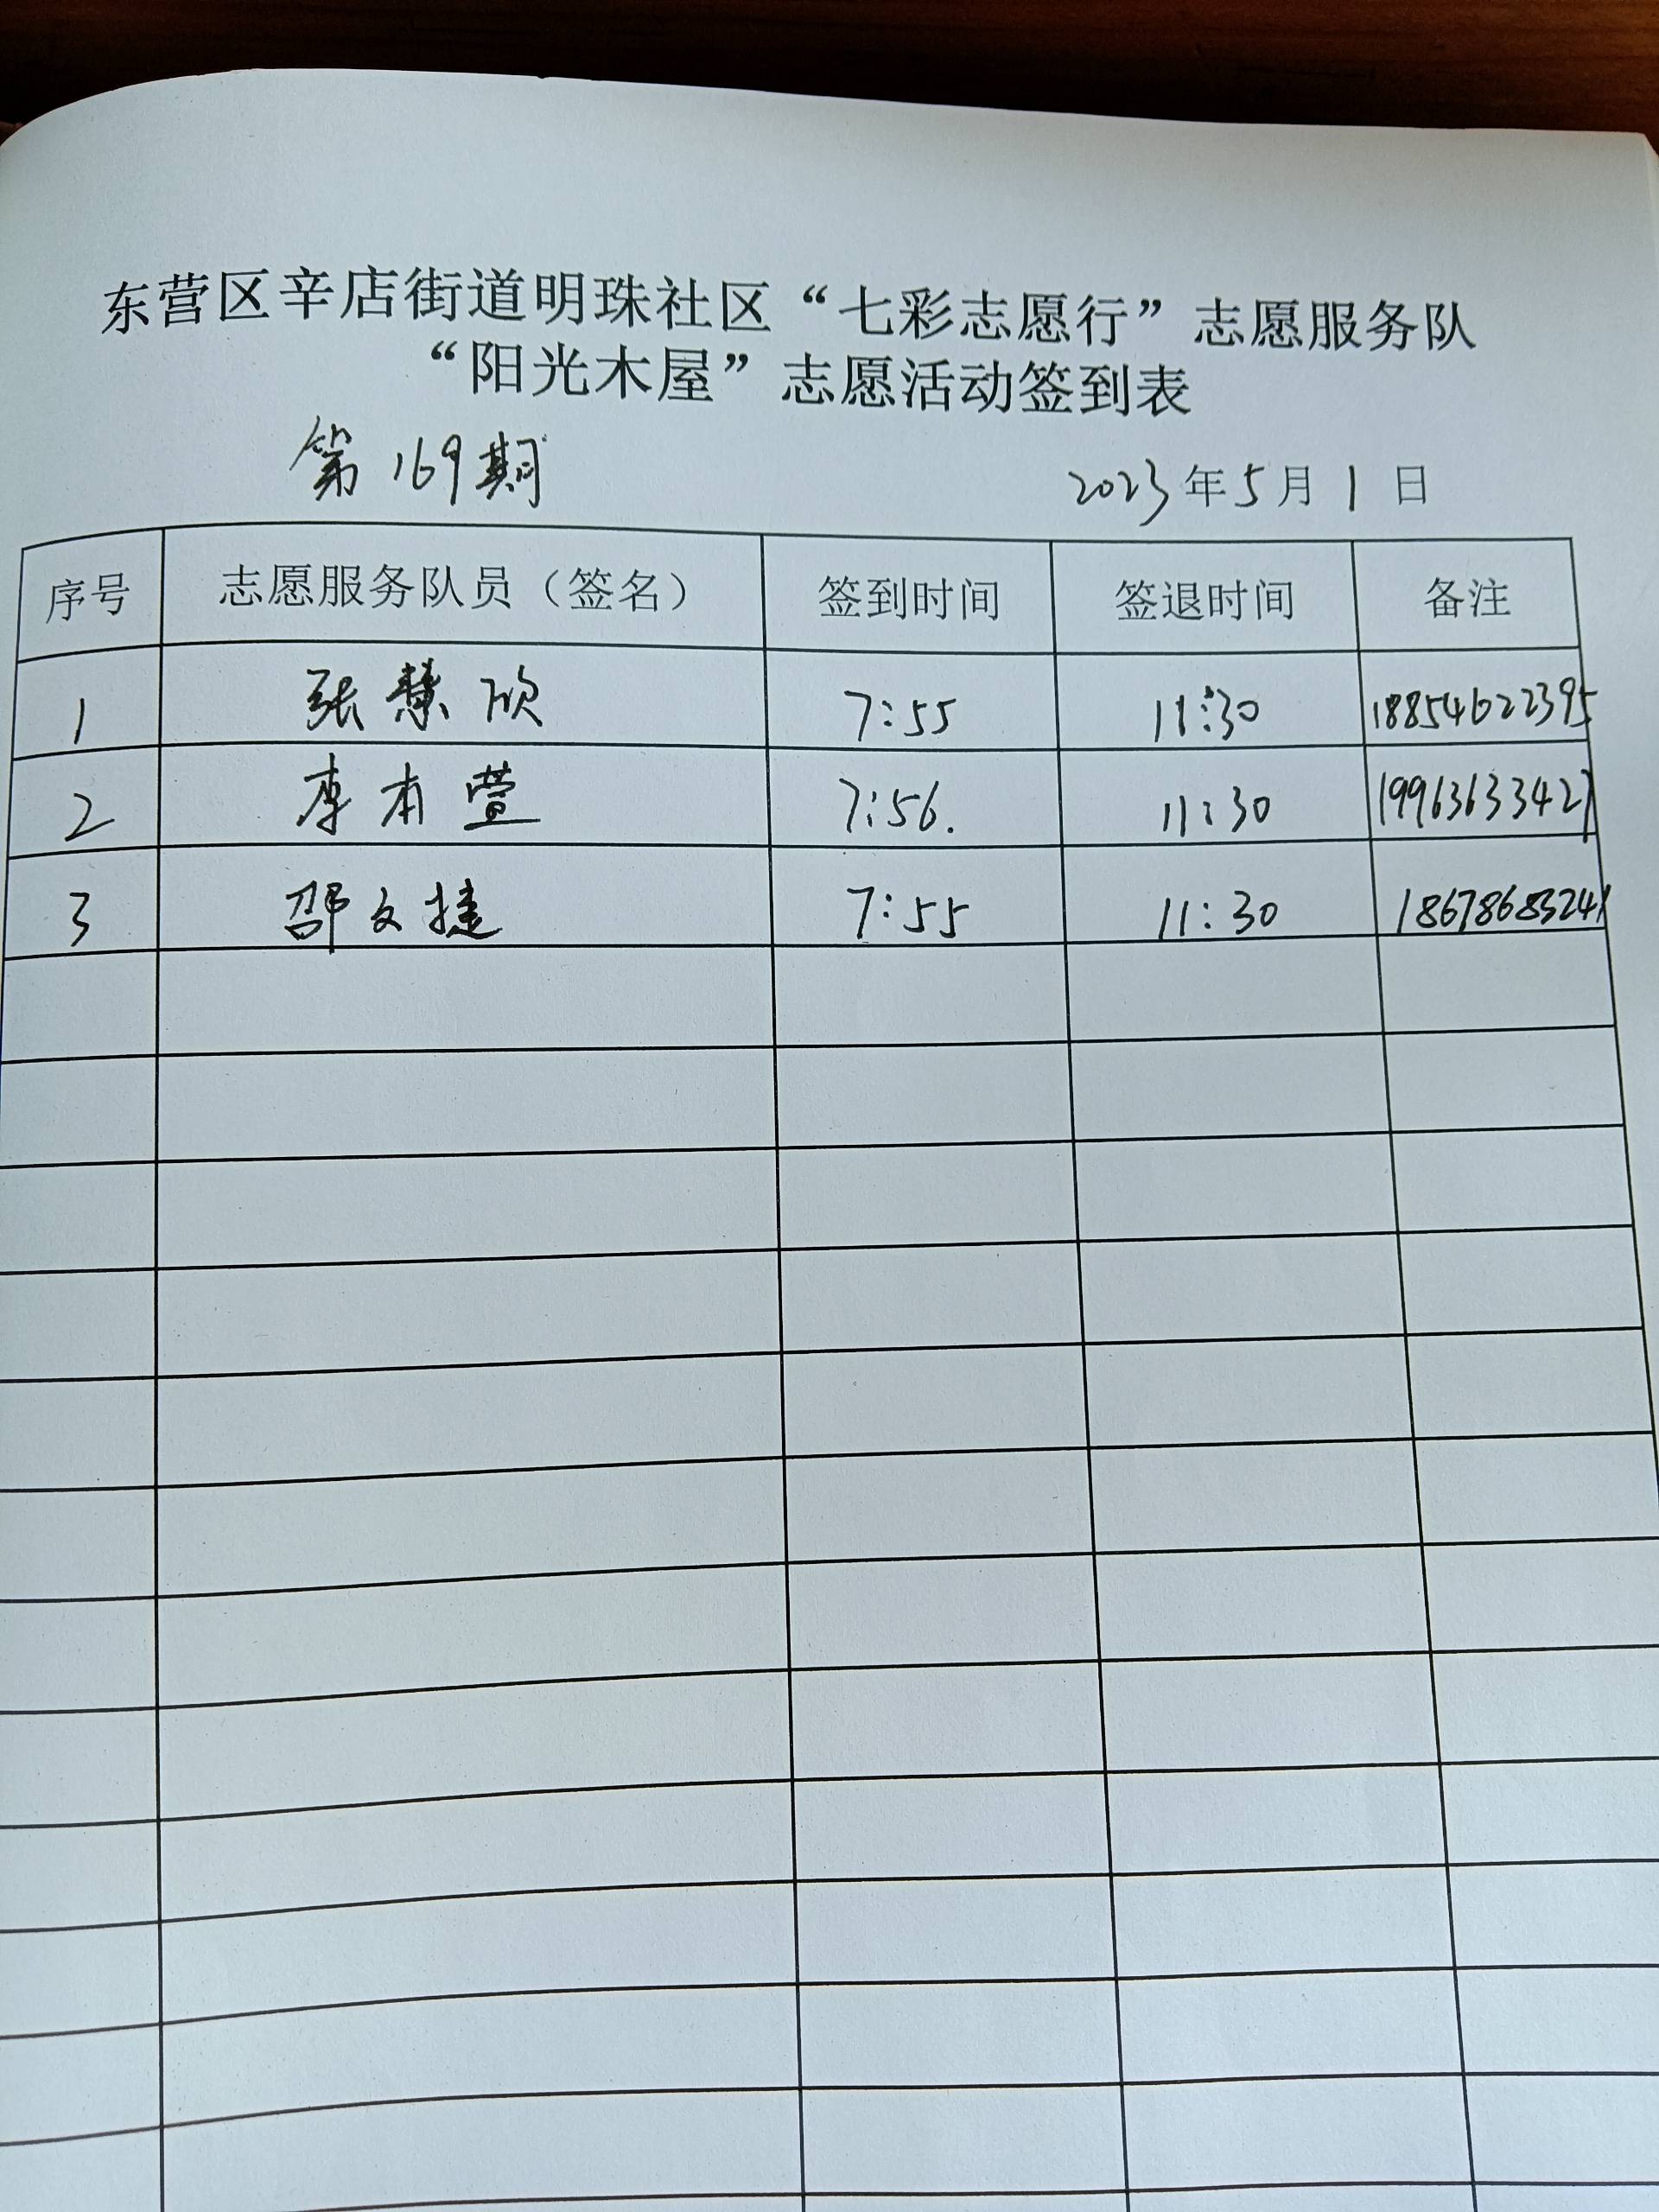 东营区辛店街道明珠社区“七彩志愿行”志愿服务队
“阳光木屋”志愿活动签到表
第169期 2023年5月1日
序号 志愿服务队员（签名） 签到时间 签退时间 备注
1 张慧欣 7:55 11:30 18854622395
2 李本萱 7:56. 11:30 19963633427
3 邵文捷 7:55 11:30 18678683241